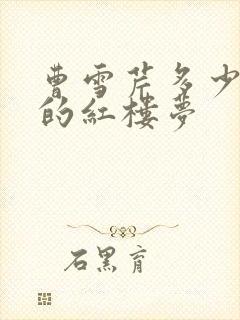 曹雪芹多少
的紅樓夢
石黑育